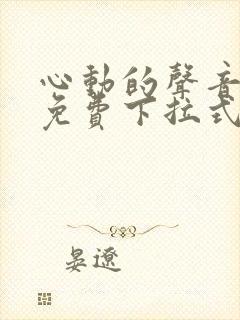 心動的聲音
免費下拉式
晏遼